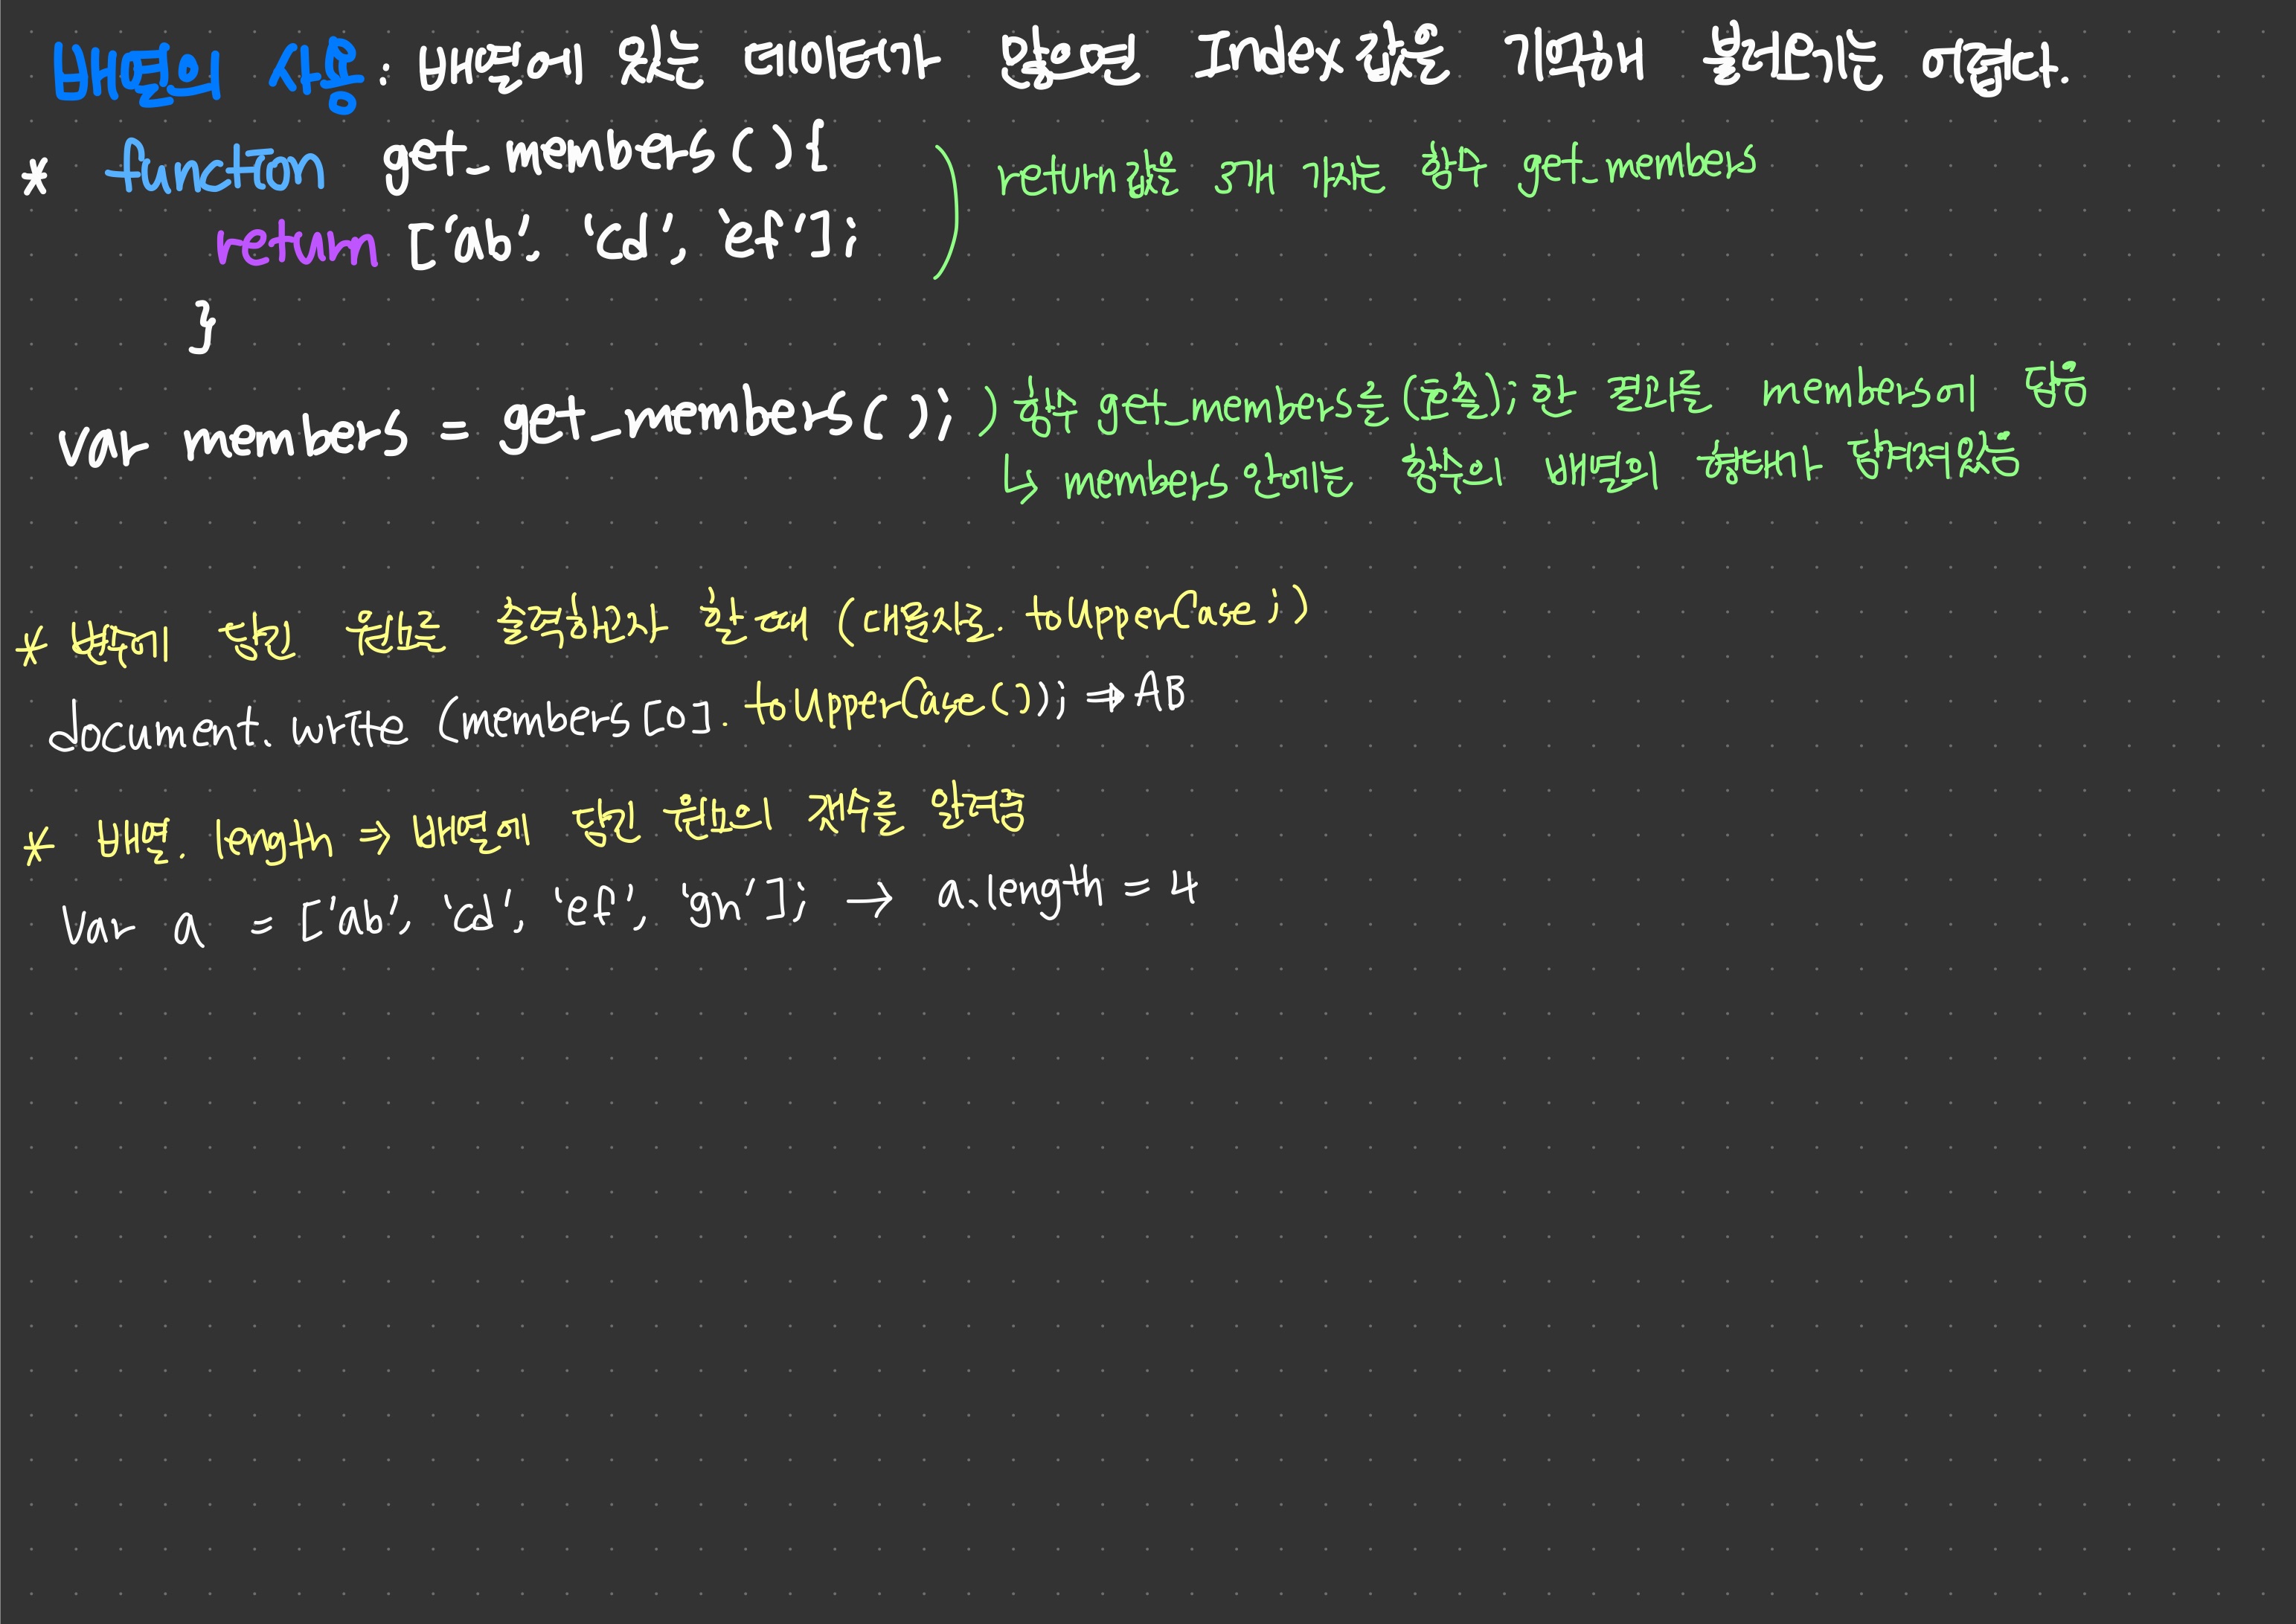 배열의 사용: 배열에 있는 데이터가 많으면 Index값을 기억해 불러오기는 어렵다.
* function get_members(){
return값을 3개 가지는 함수 get_members
return ['ab', 'cd', 'ef'];
}
var members = get_members(); ) 함수 get_members를 (호출);한 결과를 members에 담음
↳ members 안에는 함수의 배열의 형태가 담겨져있음
* 변수에 담긴 원소를 출력하고자 할 때 (대문자로. toUpperCase;)
document.write (members[0]. toUpperCase()); ⇒ AB
* 배열. length ⇒ 배열에 담긴 원소의 갯수를 알려줌
Var a = ['ab', 'cd', 'ef', 'gh']; → a.length = 4